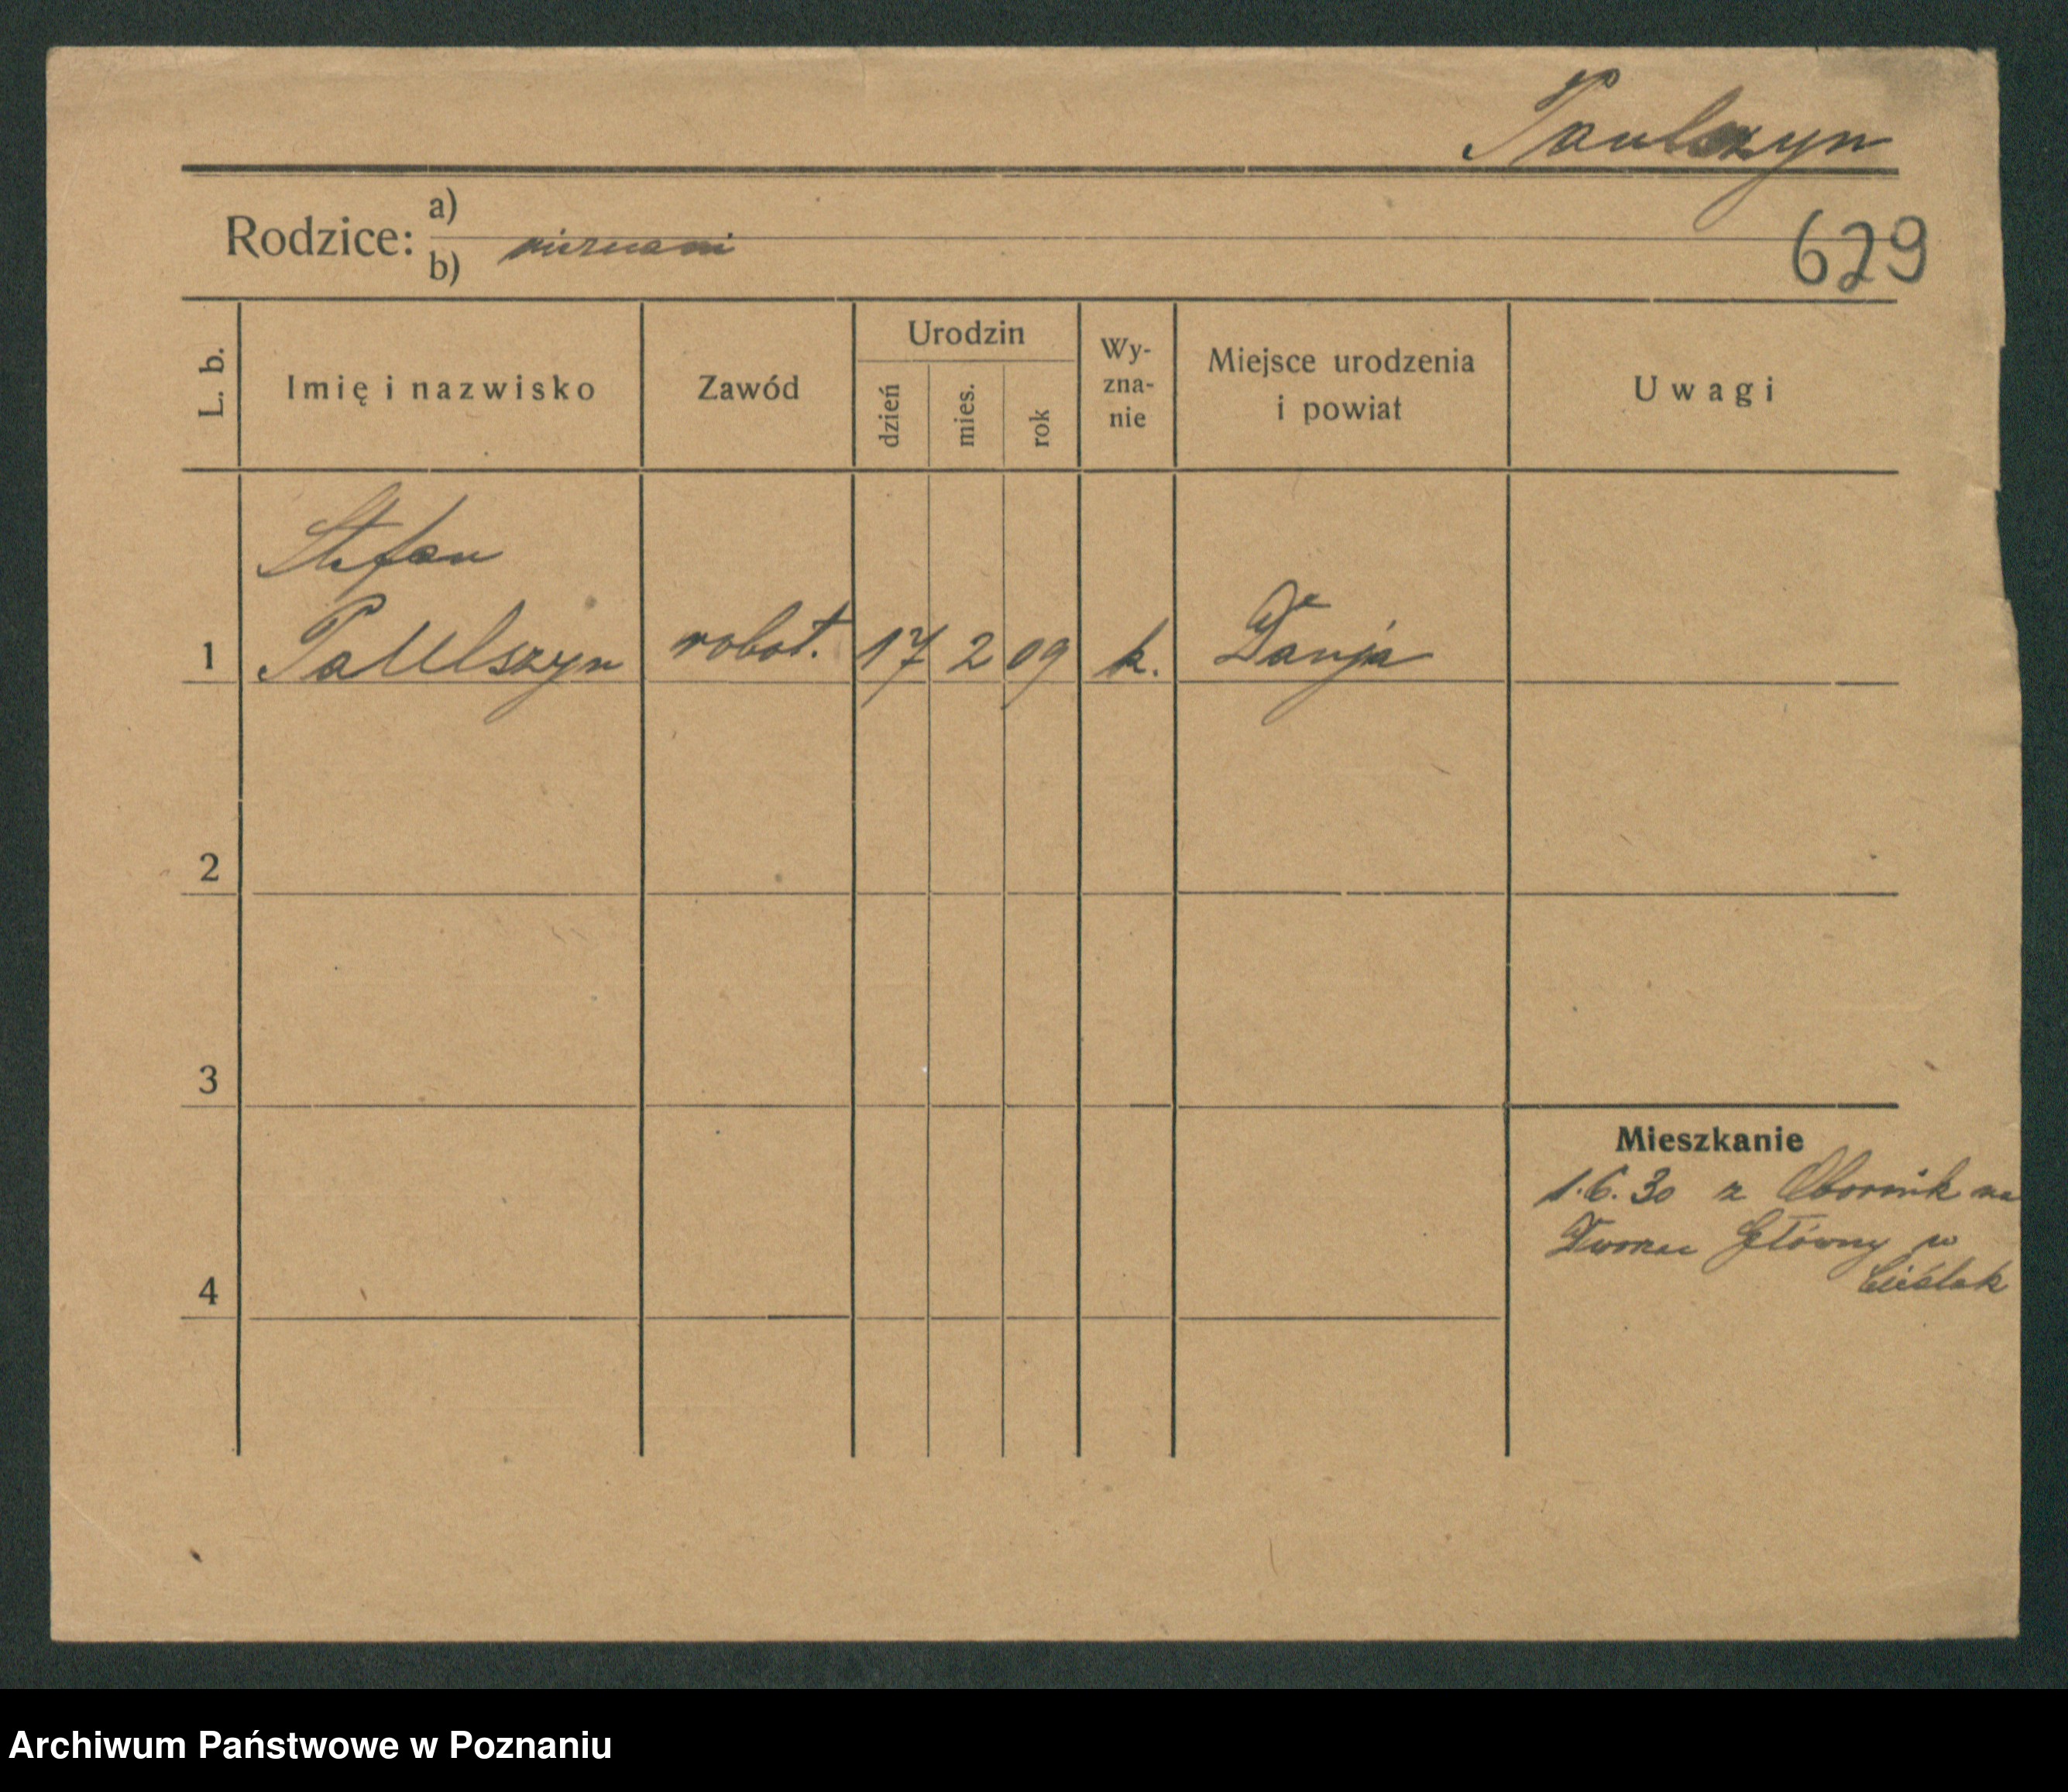 Paulszyn
Rodzice: a)
b) nieznani
629
L. b.
Imię i nazwisko
Zawód
Urodzin
dzień
mies.
rok
Wy-
zna-
nie
Miejsce urodzenia
i powiat
Uwagi
Stefan
1 Paulszyn robot. 17 2 09 k. Danja
2
3
4
Mieszkanie
1.6.30 z Obornik na
Dworzec Główny u
Cieślak
Archiwum Państwowe w Poznaniu